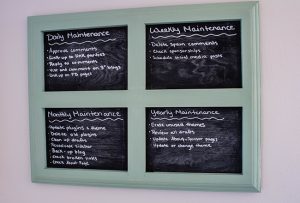 Daily Maintenance
- Approve comments
- Link up to link parties
- Reply to comments
- Visit and comment on 5 blogs
- Link up to FB pages
Weekly Maintenance
- Delete spam comments
- Check sponsorships
- Schedule social media posts
Monthly Maintenance
- Update plugins & theme
- Delete old plugins
- Clean up drafts
- Reevaluate sidebar
- Back-up blog
- Check broken links
- Check About Page
Yearly Maintenance
- Erase unused themes
- Review all drafts
- Update About & Sponsor pages
- Update or change theme